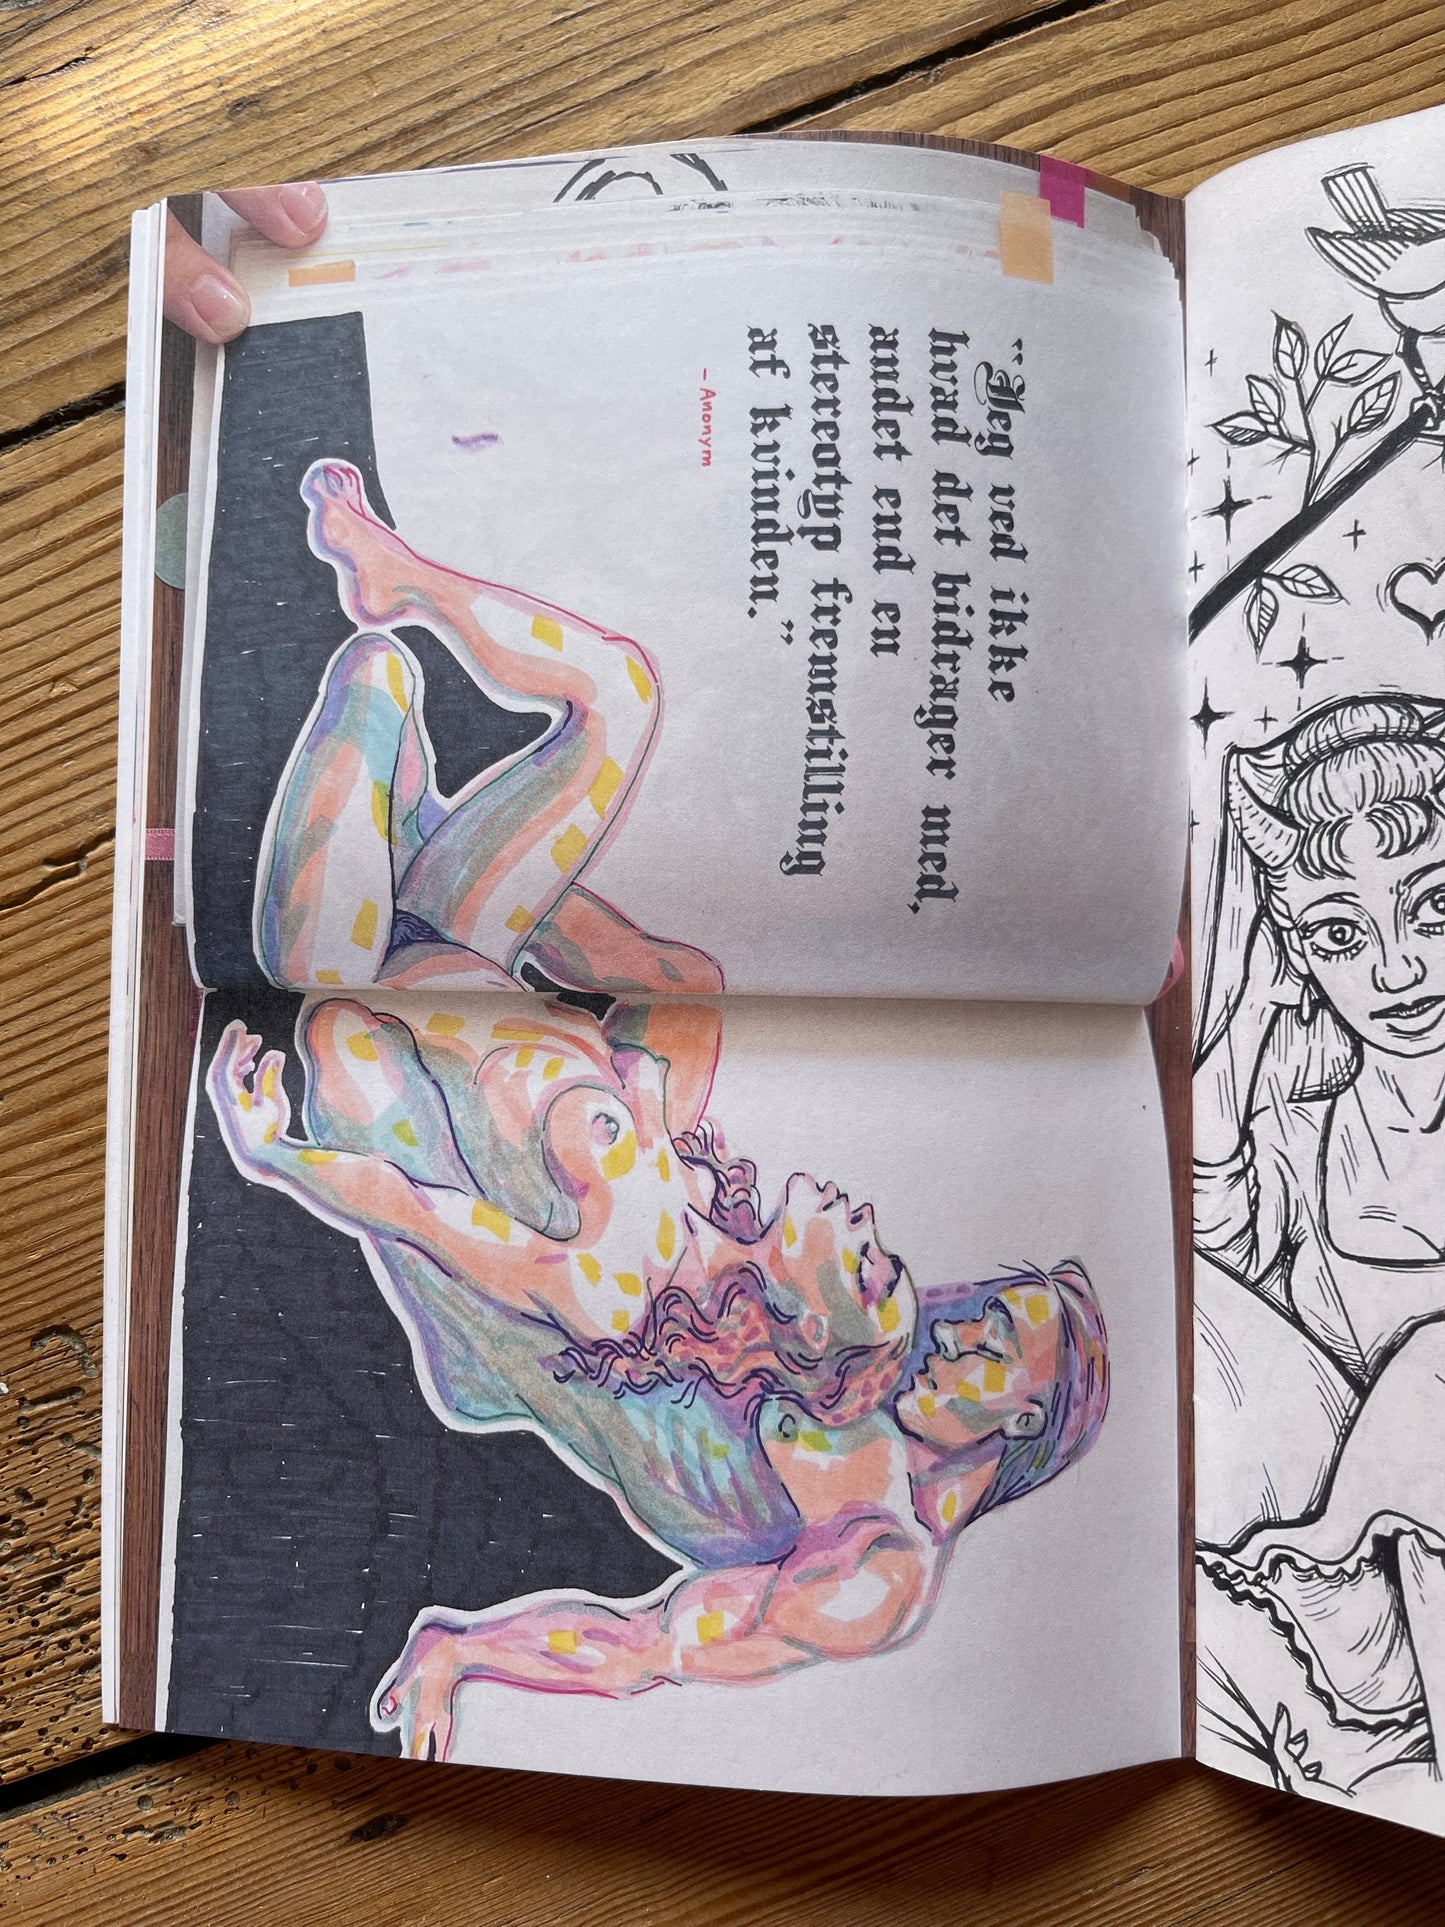 "Jeg ved ikke
hvad det bidrager med,
andet end en
stereotyp fremstilling
af kvinden."
— Anonym